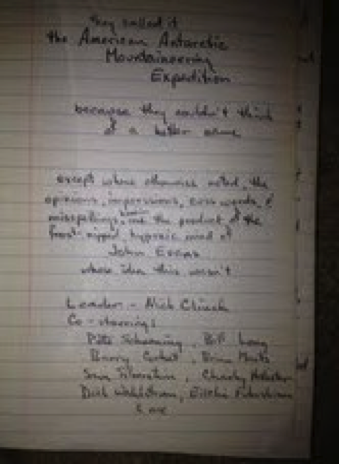 they called it
the American Antarctic
Mountaineering
Expedition
because they couldn't think
of a better name
except where otherwise noted, the
opinions, impressions, cuss words, &
misspellings, the product of the
frost-nipped, hypoxic mind of
John Evans
whose idea this wasn't
Leader - Nick Clinch
Co-starring
Pete Schoening, Bill Long
Barry Corbet, Brian Marts
Sam Silverstein, Charley Hollister
Dick Wahlstrom, Eiichi Fukushima
& me